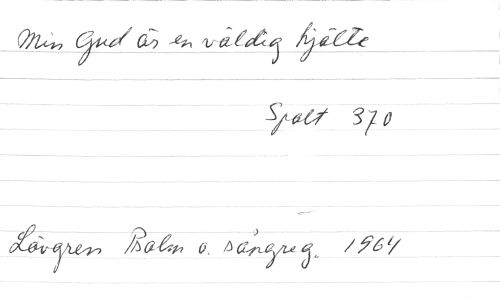 Min Gud är en väldig hjälte
Spalt 370
Lövgren Psalm o. sångreg. 1964